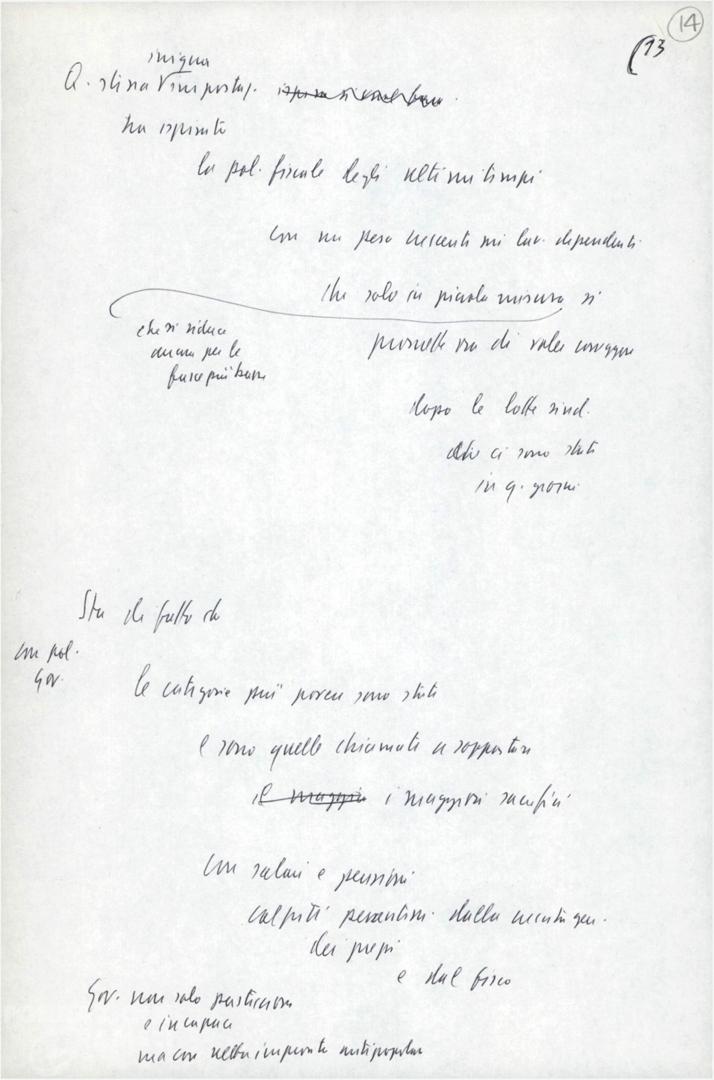 14
13
iniqua
Q. stessa impostaz.
ha ispirato
la pol. fiscale degli ultimi tempi
con un peso crescente sui lav. dipendenti
che solo in piccola misura si
che si riduce
ancora per le
fasce più basse
promette ora di voler correggere
dopo le lotte sind.
che ci sono state
in q. giorni
Sta di fatto che
con pol.
Gov.
le categorie più povere sono state
e sono quelle chiamate a sopportare
il maggio i maggiori sacrifici
con salari e pensioni
colpiti pesantem. dalla
dei prezzi
e dal fisco
Gov. non solo pasticcione
e incapace
ma con netta impronta antipopolare